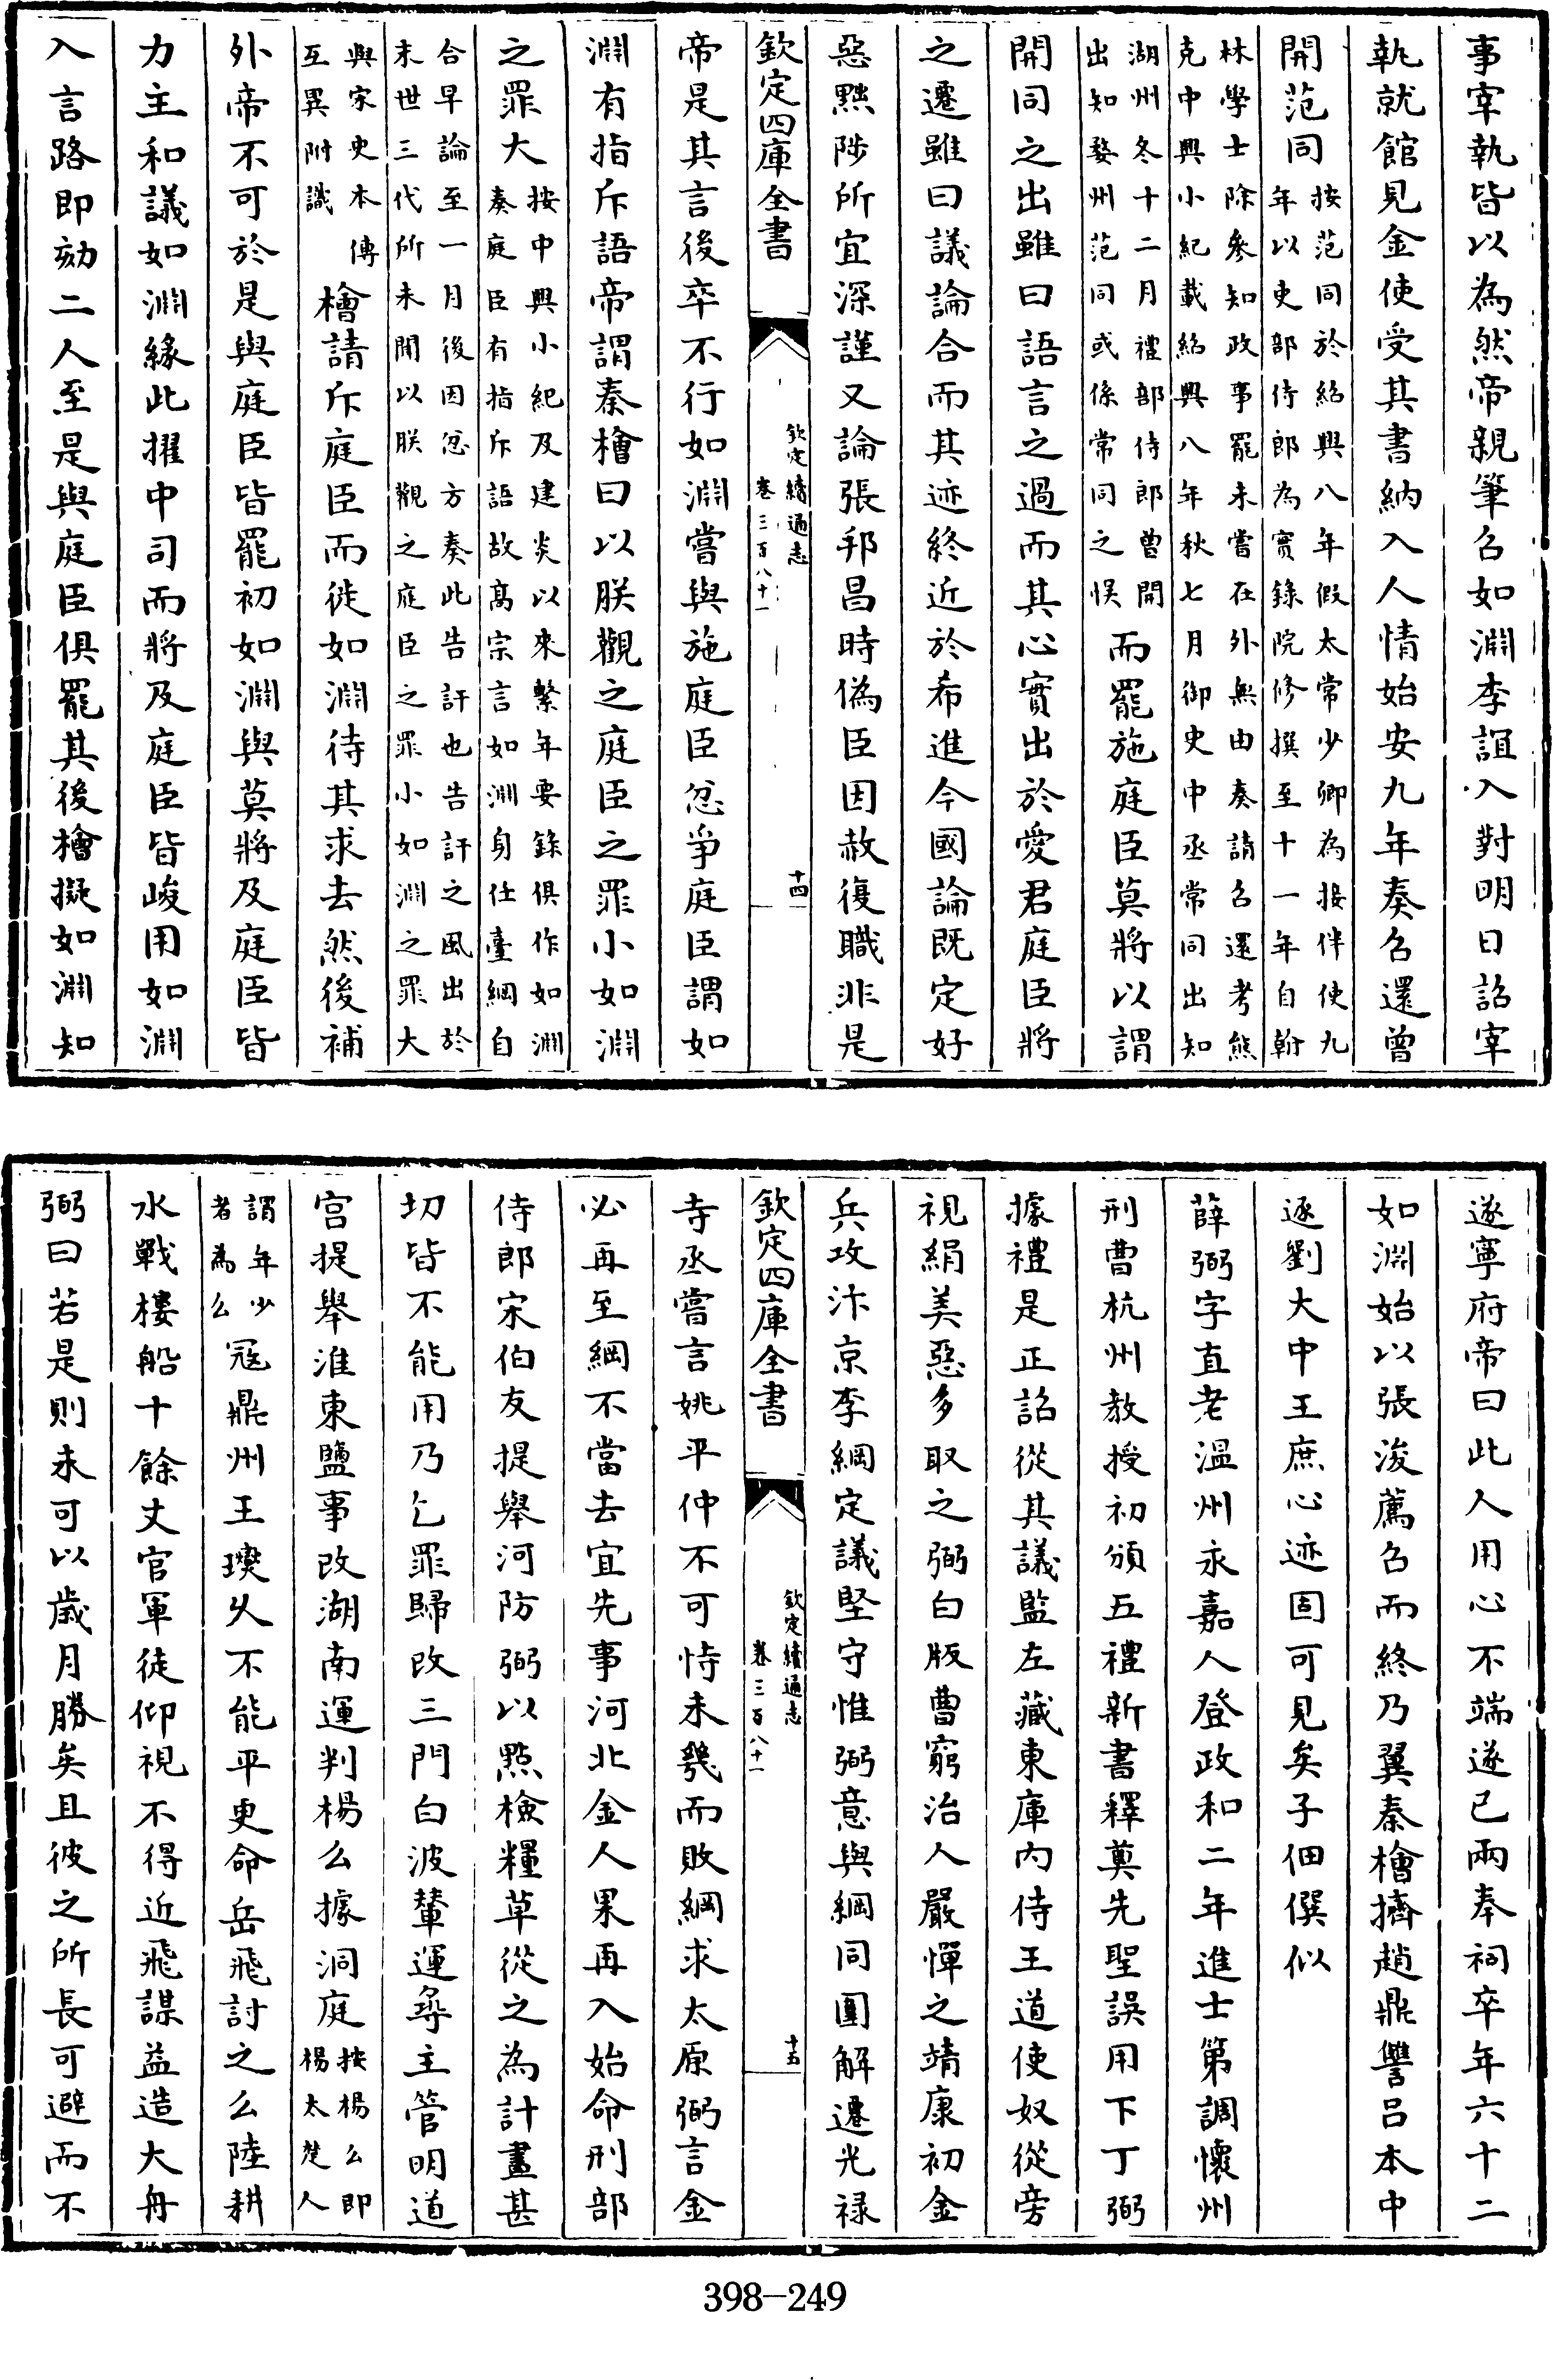 事宰執皆以為然帝親筆召如淵李誼入對明日詔宰
執就館見金使受其書納入人情始安九年奏召還曾
開范同按范同於紹興八年假太常少卿為接伴使九
年以吏部侍郎為實錄院修撰至十一年自翰
林學士除參知政事罷未嘗在外無由奏請召還考熊
克中興小紀載紹興八年秋七月御史中丞常同出知
湖州冬十二月禮部侍郎曽開
出知婺州范同或係常同之悞而罷施庭臣莫將以謂
開同之出雖曰語言之過而其心實出於愛君庭臣將
之遷雖曰議論合而其迹終近於希進今國論既定好
惡黜陟所宜深謹又論張邦昌時偽臣因赦復職非是
欽定四庫全書
欽定續通志
卷三百八十一
十四
帝是其言後卒不行如淵嘗與施庭臣忿爭庭臣謂如
淵有指斥語帝謂秦檜曰以朕觀之庭臣之罪小如淵
之罪大按中興小紀及建炎以來繫年要錄俱作如淵
奏庭臣有指斥語故高宗言如淵身任臺綱自
合早論至一月後因忿方奏此告訐也告訐之風出於
末世三代所未聞以朕觀之庭臣之罪小如淵之罪大
與家史本傳
互異附識檜請斥庭臣而徙如淵待其求去然後補
外帝不可於是與庭臣皆罷初如淵與莫將及庭臣皆
力主和議如淵緣此擢中司而將及庭臣皆峻用如淵
入言路即劾二人至是與庭臣俱罷其後檜擬如淵知
遂寧府帝曰此人用心不端遂已兩奉祠卒年六十二
如淵始以張浚薦召而終乃翼秦檜擠趙鼎讐吕本中
逐劉大中王庶心迹固可見矣子佃僎似
薛弼字直老温州永嘉人登政和二年進士第調懷州
刑曹杭州教授初頒五禮新書釋奠先聖誤用下丁弼
據禮是正詔從其議監左藏東庫内侍王道使奴從旁
視絹美惡多取之弼白版曹窮治人嚴憚之靖康初金
兵攻汴京李綱定議堅守惟弼意與綱同圍解遷光禄
欽定四庫全書
欽定續通志
卷三百八十一
十五
寺丞嘗言姚平仲不可恃未幾而敗綱求太原弼言金
必再至綱不當去宜先事河北金人果再入始命刑部
侍郎宋伯友提舉河防弼以點檢糧草從之為計畫甚
切皆不能用乃乞罪歸改三門白波輦運尋主管明道
宫提舉淮東鹽事改湖南運判楊么據洞庭按楊么即
楊太楚人
謂年少
者為么寇鼎州王𤫉久不能平更命岳飛討之么陸耕
水戰樓船十餘丈官軍徒仰視不得近飛謀益造大舟
弼曰若是則未可以歲月勝矣且彼之所長可避而不
398-249